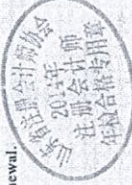 山东省注册会计师协会
2014年
注册会计师
年检合格专用章
newal.